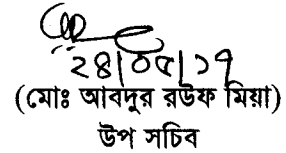 ২৪|০৫|১৭
(মোঃ আবদুর রউফ মিয়া)
উপ সচিব